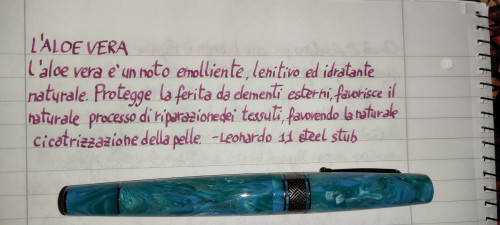 L'ALOE VERA
L'aloe vera e' un noto emolliente, lenitivo ed idratante
naturale. Protegge la ferita da elementi esterni, favorisce il
naturale processo di riparazione dei tessuti, favorendo la naturale
cicatrizzazione della pelle. -Leonardo 1.1 steel stub